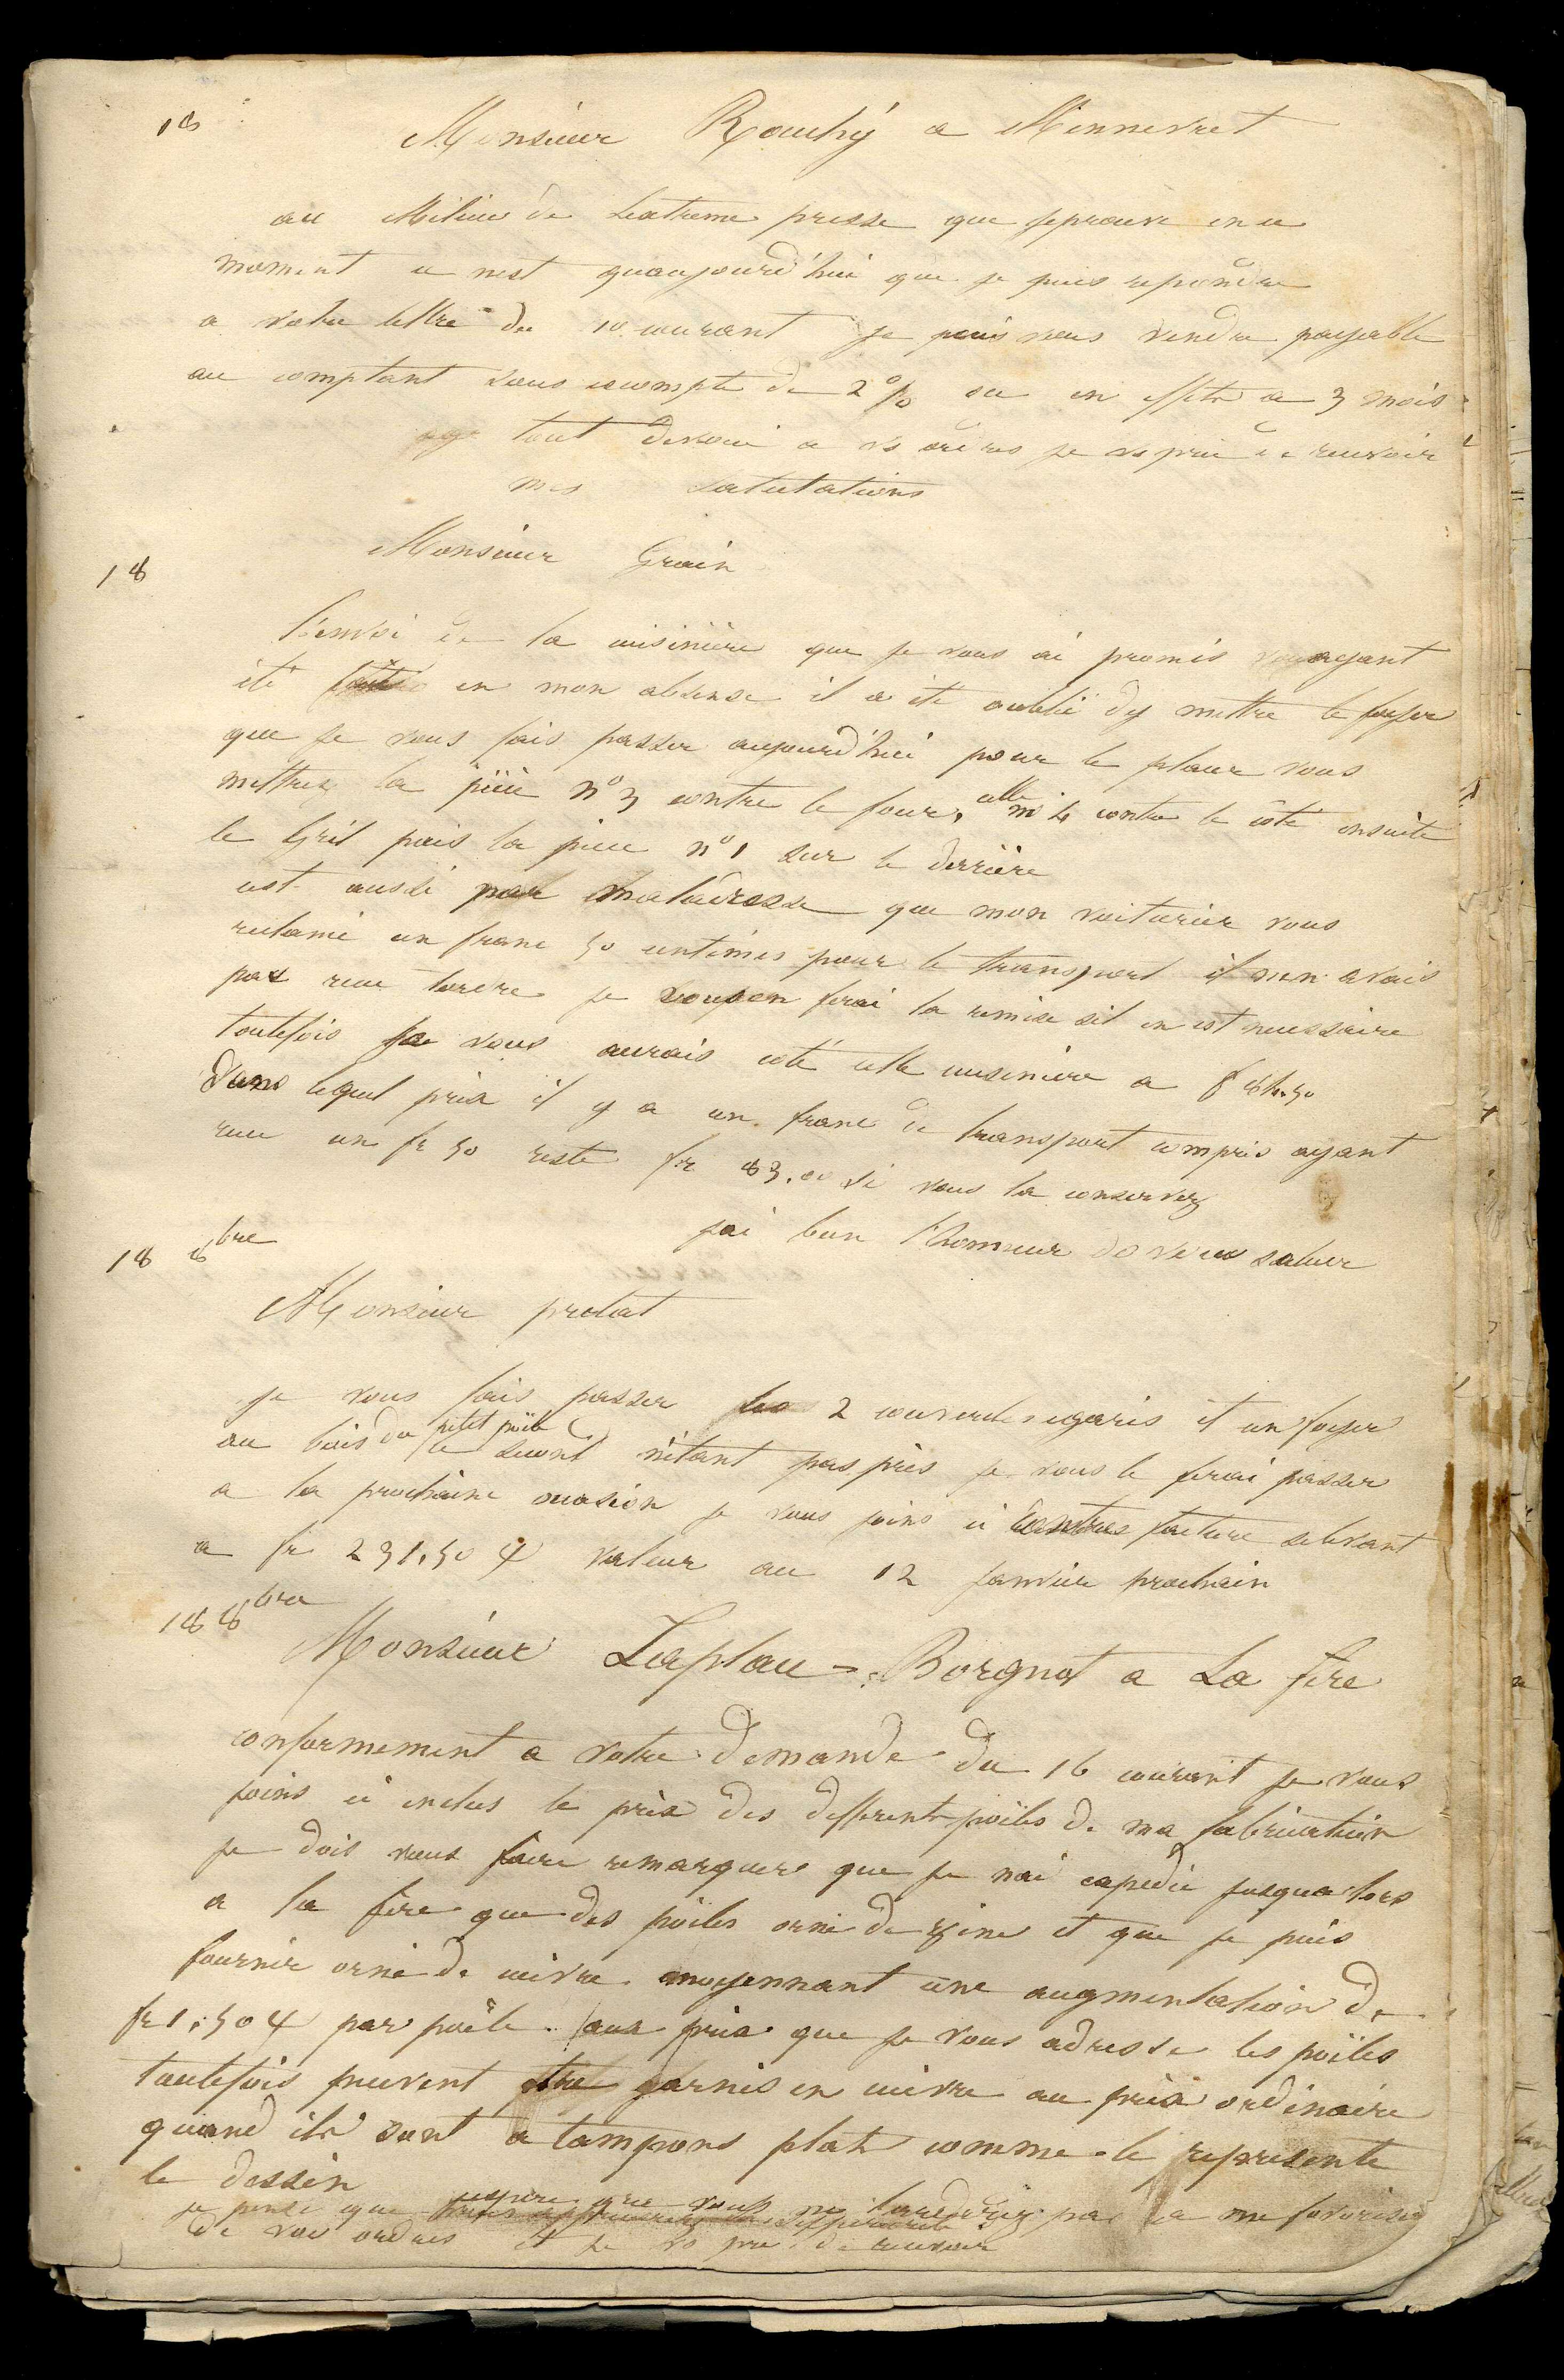 18
Monsieur Rouhy a Mennevret
au Milieu de Lextreme presse que jeprouve en ce
moment ce nest quaujourd'hui que je puis repondre
a votre lettre du 10 courant je puis vous vendre payable
au comptant sous escompte de 2 % ou en effets a 3 mois
tout devoué a vs ordres je vs prie de recevoir
mes salutations
18
Monsieur Grain
L'envoi de la cuisinière que je vous ai promis ayant
été faite en mon absense il a été oublié dy mettre le foyer
que je vous fais passer aujourd'hui pour le placer vous
mettrez la pièce n° 3 contre le four, celle n° 4 contre le côté ensuite
le Gril puis la pièce n° 1 sur le derrière
cest aussi par maladresse que mon voiturier vous
reclamé un franc 50 centimes pour le transport il nen avais
pas recu lordre je vous en ferai la remise sil en est necessaire
toutefois je vous aurais coté cette cuisiniere a f 84.50
dans lequel prix il y a un franc de transport compris ayant
recu un fr 50 reste fr 83.00 si vous la conservez
jai bien l'honneur de vous saluer
18 8bre
Monsieur protat
je vous fais passer les 2 couvercles egaris et un foyer
au bois du petit poële le second n'étant pas près je vous le ferai passer
a la prochaine occasion je vous joins ci contre facture selevant
a fr 231.50 valeur au 12 janvier prochain
18 8bre
Monsieur Laplace = Borgnot a La fère
conformement a votre demande du 16 courant je vous
joins ci inclus le prix des defferents poëles de ma fabrication
je dois vous faire remarquer que je nai expedié jusqualors
a la fère que des poëles orné de zinc et que je puis
fournir orné de cuivre moyennant une augmentation de
fr 1.50 par poële aux prix que je vous adresse les poëles
toutefois peuvent etre garnis en cuivre au prix ordinaire
quand ils sont a tampons plats comme le represente
le dessin
jespere que vous ne tarderez pas a me favoriser
de vos ordres et je vs prie de recevoir